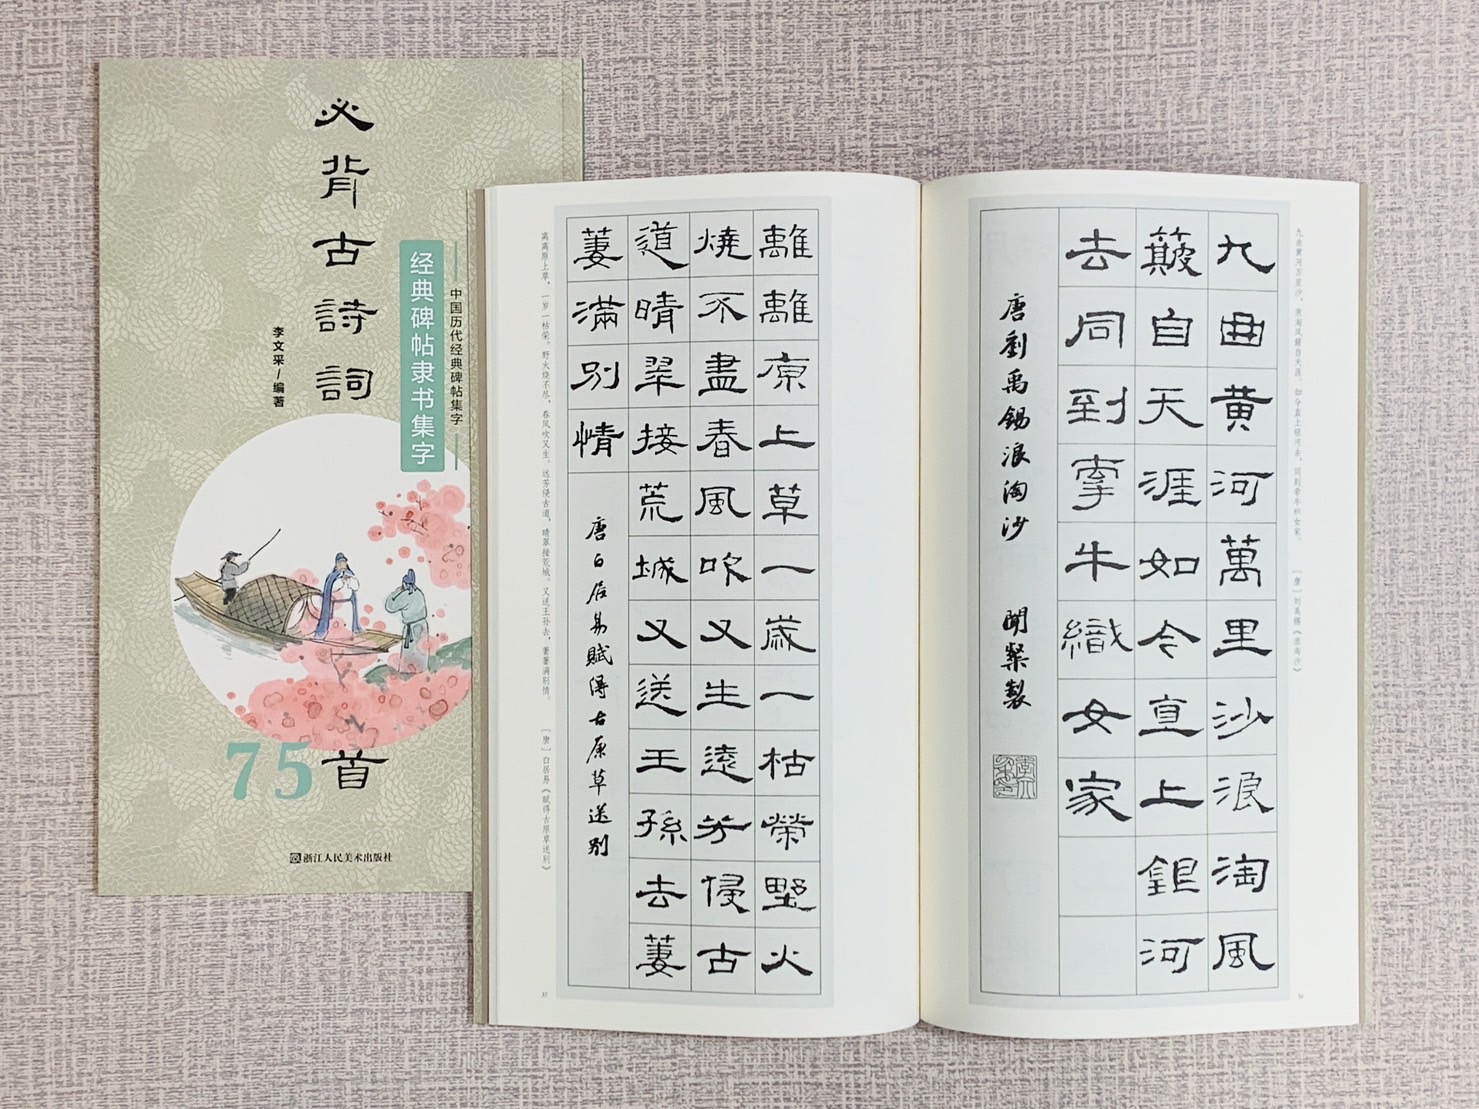 必背古詩詞
75首
经典碑帖隶书集字
中国历代经典碑帖集字
李文采/编著
浙江人民美术出版社
九曲黄河万里沙，浪淘风簸自天涯。如今直上银河去，同到牵牛织女家。　［唐］刘禹锡《浪淘沙》
九曲黃河萬里沙浪淘風
簸自天涯如今直上銀河
去同到牽牛織女家
唐劉禹錫浪淘沙　聞粲製
離離原上草一歲一枯榮野火
燒不盡春風吹又生遠芳侵古
道晴翠接荒城又送王孫去萋
萋滿別情
唐白居易賦得古原草送別
离离原上草，一岁一枯荣。野火烧不尽，春风吹又生。远芳侵古道，晴翠接荒城。又送王孙去，萋萋满别情。　［唐］白居易《赋得古原草送别》
37